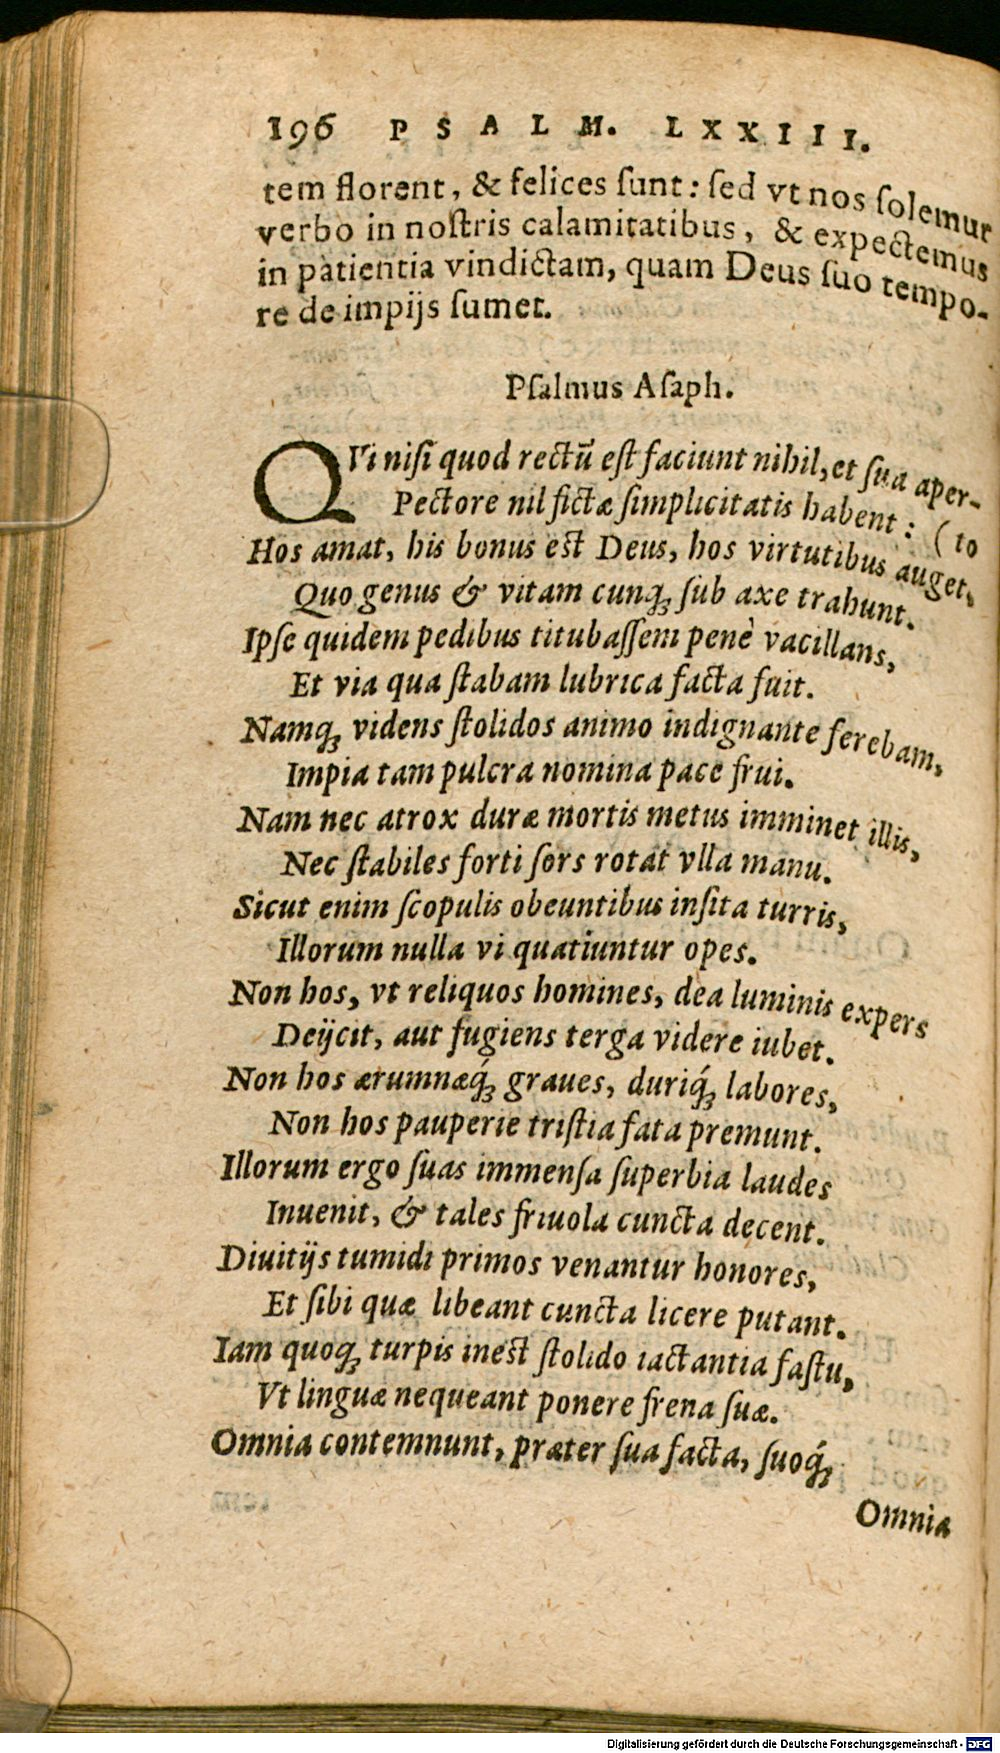 196 PSALM. LXXIII.
tem florent, & felices ſunt: ſed vt nos ſolemur
verbo in noſtris calamitatibus, & expectemus
in patientia vindictam, quam Deus ſuo tempo-
re de impijs ſumet.
Pſalmus Aſaph.
QVi niſi quod rectū eſt faciunt nihil, et ſua aper-
Pectore nil fictæ ſimplicitatis habent: (to
Hos amat, his bonus est Deus, hos virtutibus auget,
Quo genus & vitam cunqꝫ ſub axe trahunt.
Ipſe quidem pedibus titubaſſem penè vacillans,
Et via qua ſtabam lubrica facta fuit.
Namqꝫ videns ſtolidos animo indignante ferebam,
Impia tam pulcra nomina pace frui.
Nam nec atrox duræ mortis metus imminet illis,
Nec ſtabiles forti ſors rotat vlla manu.
Sicut enim ſcopulis obeuntibus inſita turris,
Illorum nulla vi quatiuntur opes.
Non hos, vt reliquos homines, dea luminis expers
Deijcit, aut fugiens terga videre iubet.
Non hos ærumnæq́ꝫ graues, duriq́ꝫ labores,
Non hos pauperie triſtia fata premunt.
Illorum ergo ſuas immenſa ſuperbia laudes
Inuenit, & tales friuola cuncta decent.
Diuitijs tumidi primos venantur honores,
Et ſibi quæ libeant cuncta licere putant.
Iam quoqꝫ turpis inest ſtolido iactantia faſtu,
Vt linguæ nequeant ponere frena ſuæ.
Omnia contemnunt, præter ſua facta, ſuoq́ꝫ
Omnia
Digitalisierung gefördert durch die Deutsche Forschungsgemeinschaft - DFG